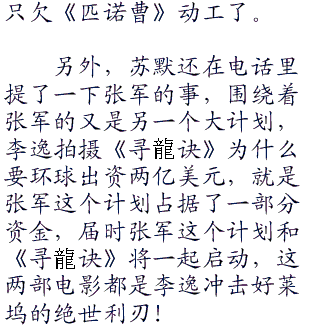 只欠《匹诺曹》动工了。
另外，苏默还在电话里
提了一下张军的事，围绕着
张军的又是另一个大计划，
李逸拍摄《寻龍诀》为什么
要环球出资两亿美元，就是
张军这个计划占据了一部分
资金，届时张军这个计划和
《寻龍诀》将一起启动，这
两部电影都是李逸冲击好莱
坞的绝世利刃！